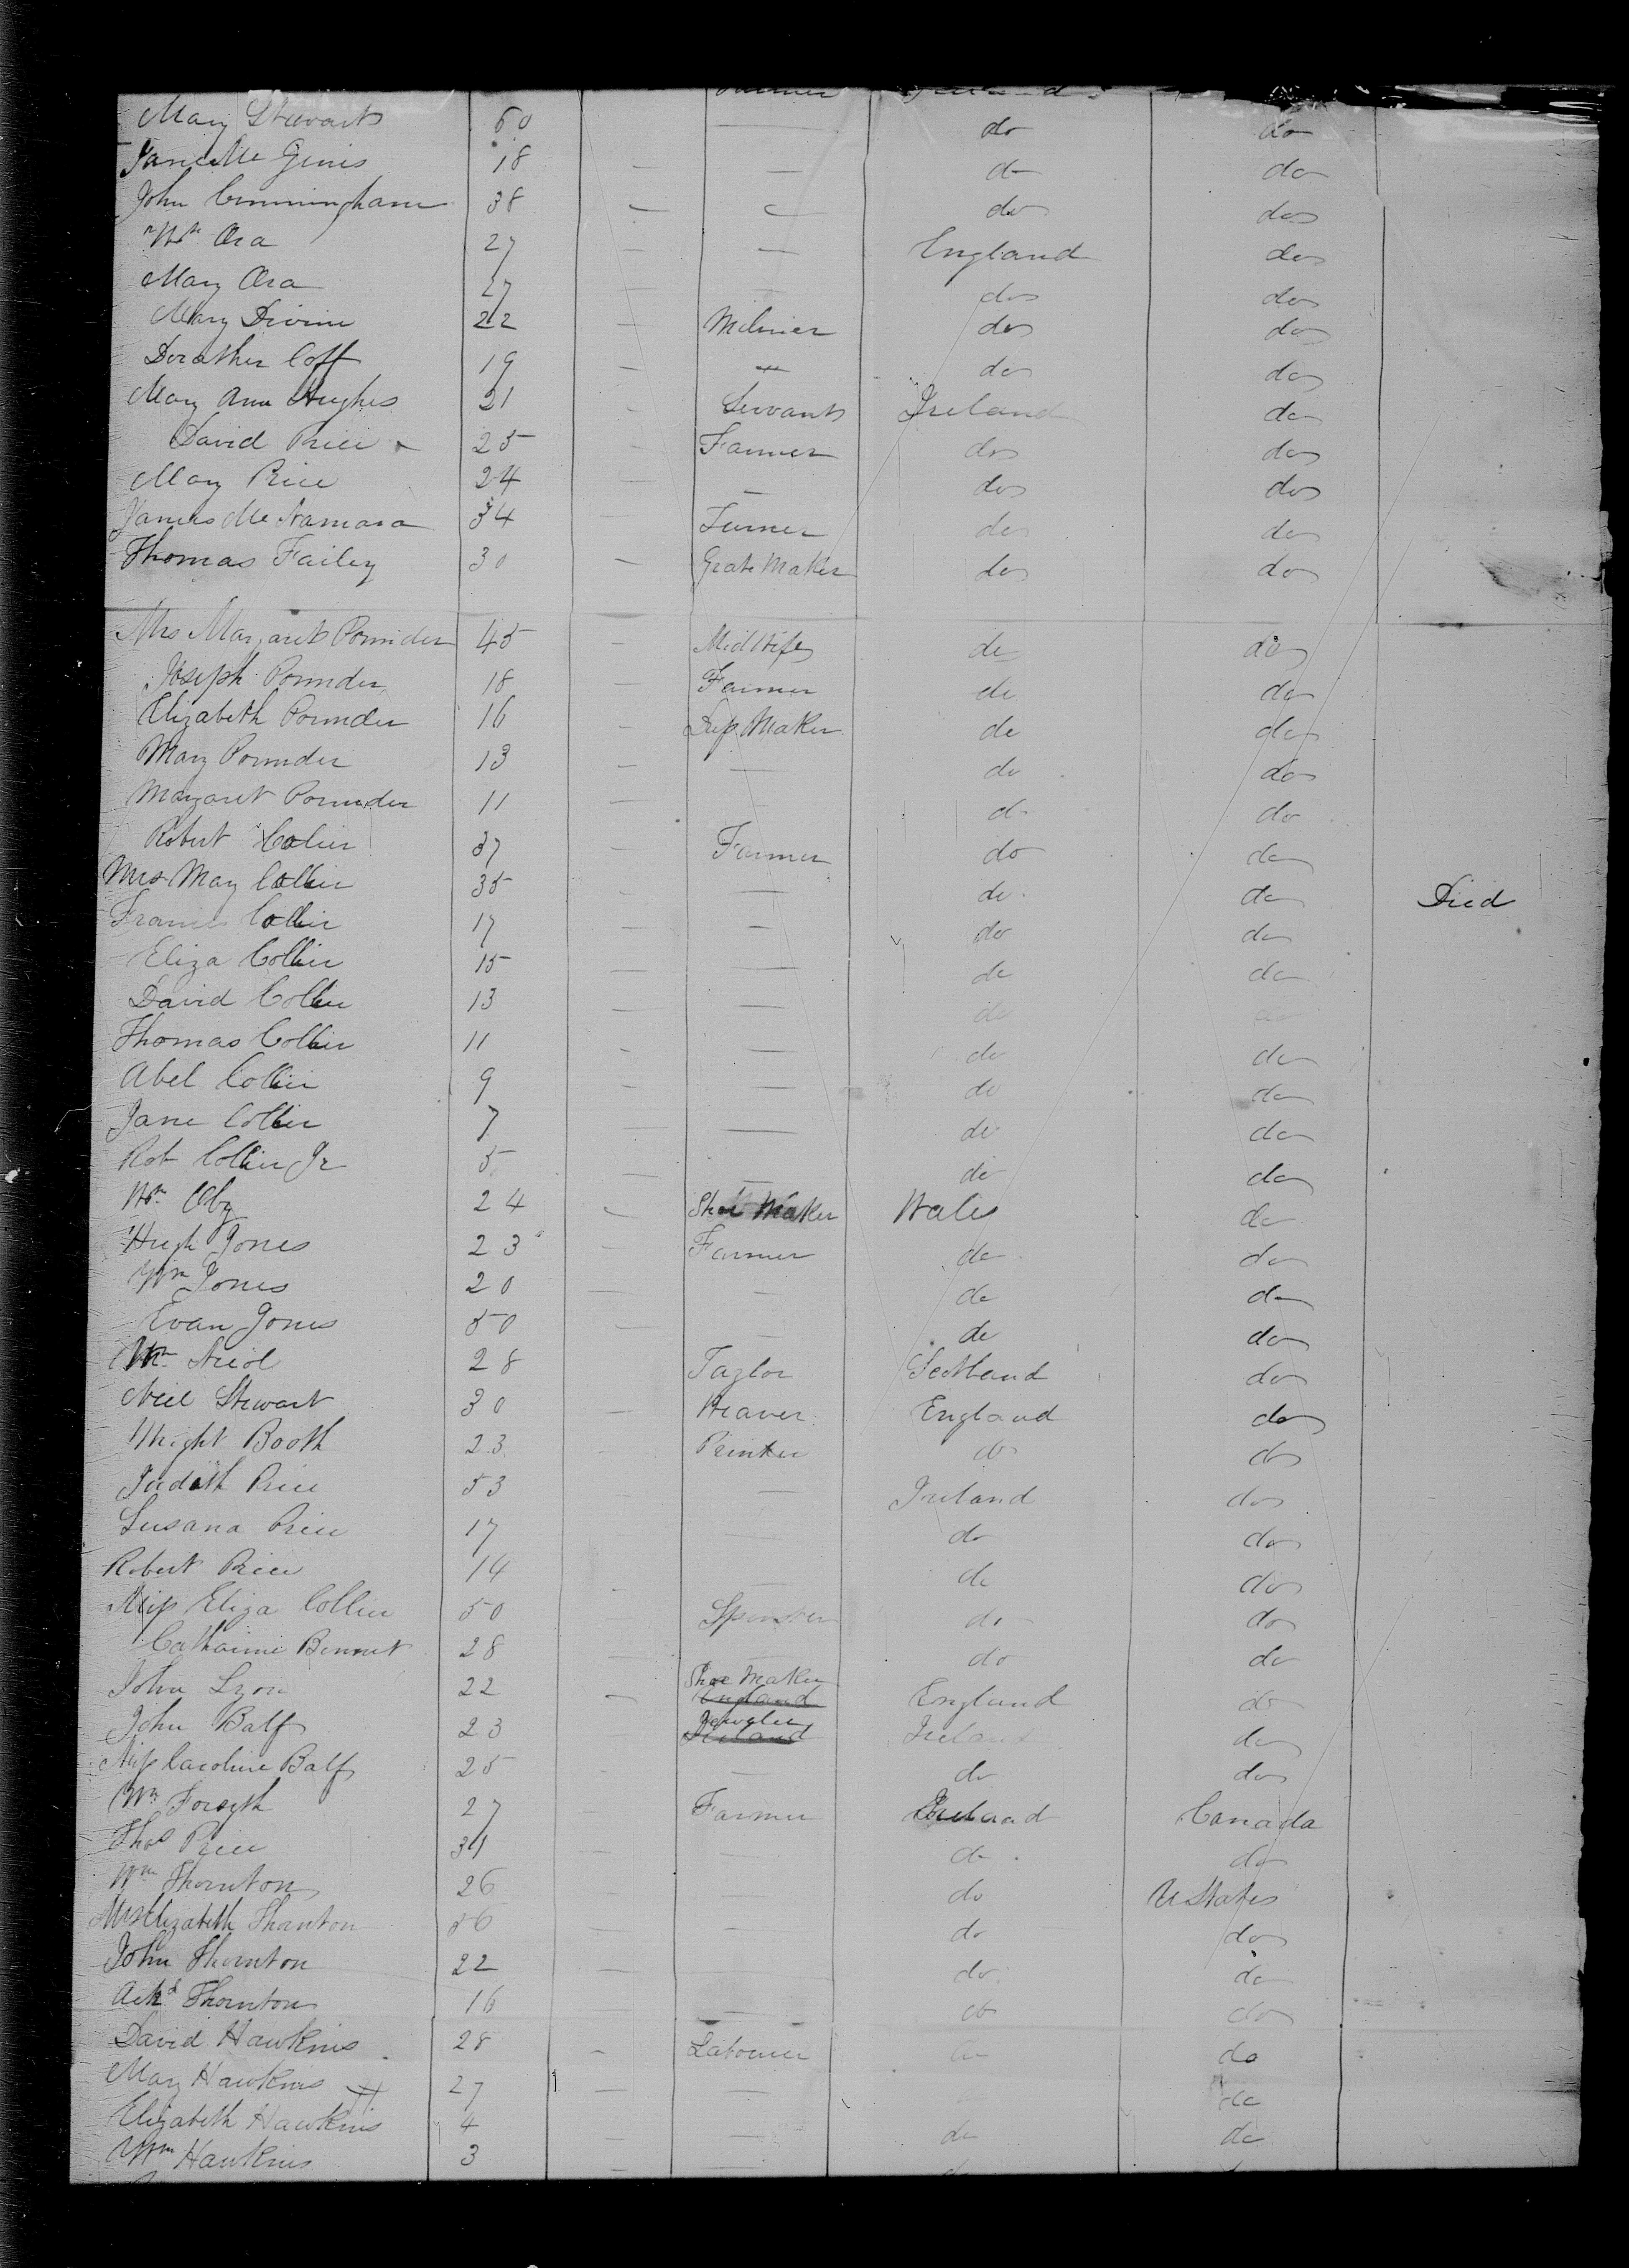 Mary Stewart 60 — do do
Jane Mc Ginis 18 — — do do
John Cunningham 38 — — do do
Wm Ora 27 — — England do
Mary Ora 27 — — do do
Mary Divine 22 — Milinier do do
Dorather Coff 19 — — do do
Mary Ann Hughes 21 - Servant Ireland do
David Price 25 - Farmer do do
Mary Price 24 — — do do
James Mc Namara 34 — Turner do do
Thomas Failey 30 — Grate Maker do do
Mrs Margaret Pounder 45 — Mid Wife do do
Joseph Pounder 18 — Farmer do do
Elizabeth Pounder 16 - Dress Maker do do
Mary Pounder 13 — — do do
Margaret Pounder 11 — — do do
Robert Colier 37 — Farmer do do
Mrs Mary Collier 35 — — do do Died
Francis Collier 17 — — do do
Eliza Collier 15 — — do do
David Collier 13 — — do do
Thomas Collier 11 - — do do
Abel Collier 9 — — do do
Jane Collier 7 — — do do
Rob Collier Jr 5 — — do do
Wm Oby 24 — Shoe Maker Wales do
Hugh Jones 23 — Farmer do do
Wm Jones 20 — — do do
Evan Jones 50 — — do do
Wm Nicol 28 Taylor Scotland do
Neil Stewart 30 — Weaver England do
Wright Booth 23 - Printer do do
Judath Price 53 — Ireland do
Susana Price 17 — do do
Robert Price 14 — do do
Miss Eliza Collier 50 Spinster do do
Catharine Bennet 28 — — do do
John Lyon 22 — Shoe Maker England England do
John Balf 23 Jeweler Ireland Ireland do
Miss Caroline Balf 25 — — do do
Wm Forsyth 27 Farmer Ireland Canada
Thos Price 31 — — do do
Wm Thornton 26 — do U States
Mrs Elizabeth Thornton 56 — — do do
John Thornton 22 — — do do
Thornton 16 — do do
David Hawkins 28 - Labourer do do
Mary Hawkins 27 — — do
Elizabeth Hawkins 4 — — do do
Wm Hawkins 3 — — do do